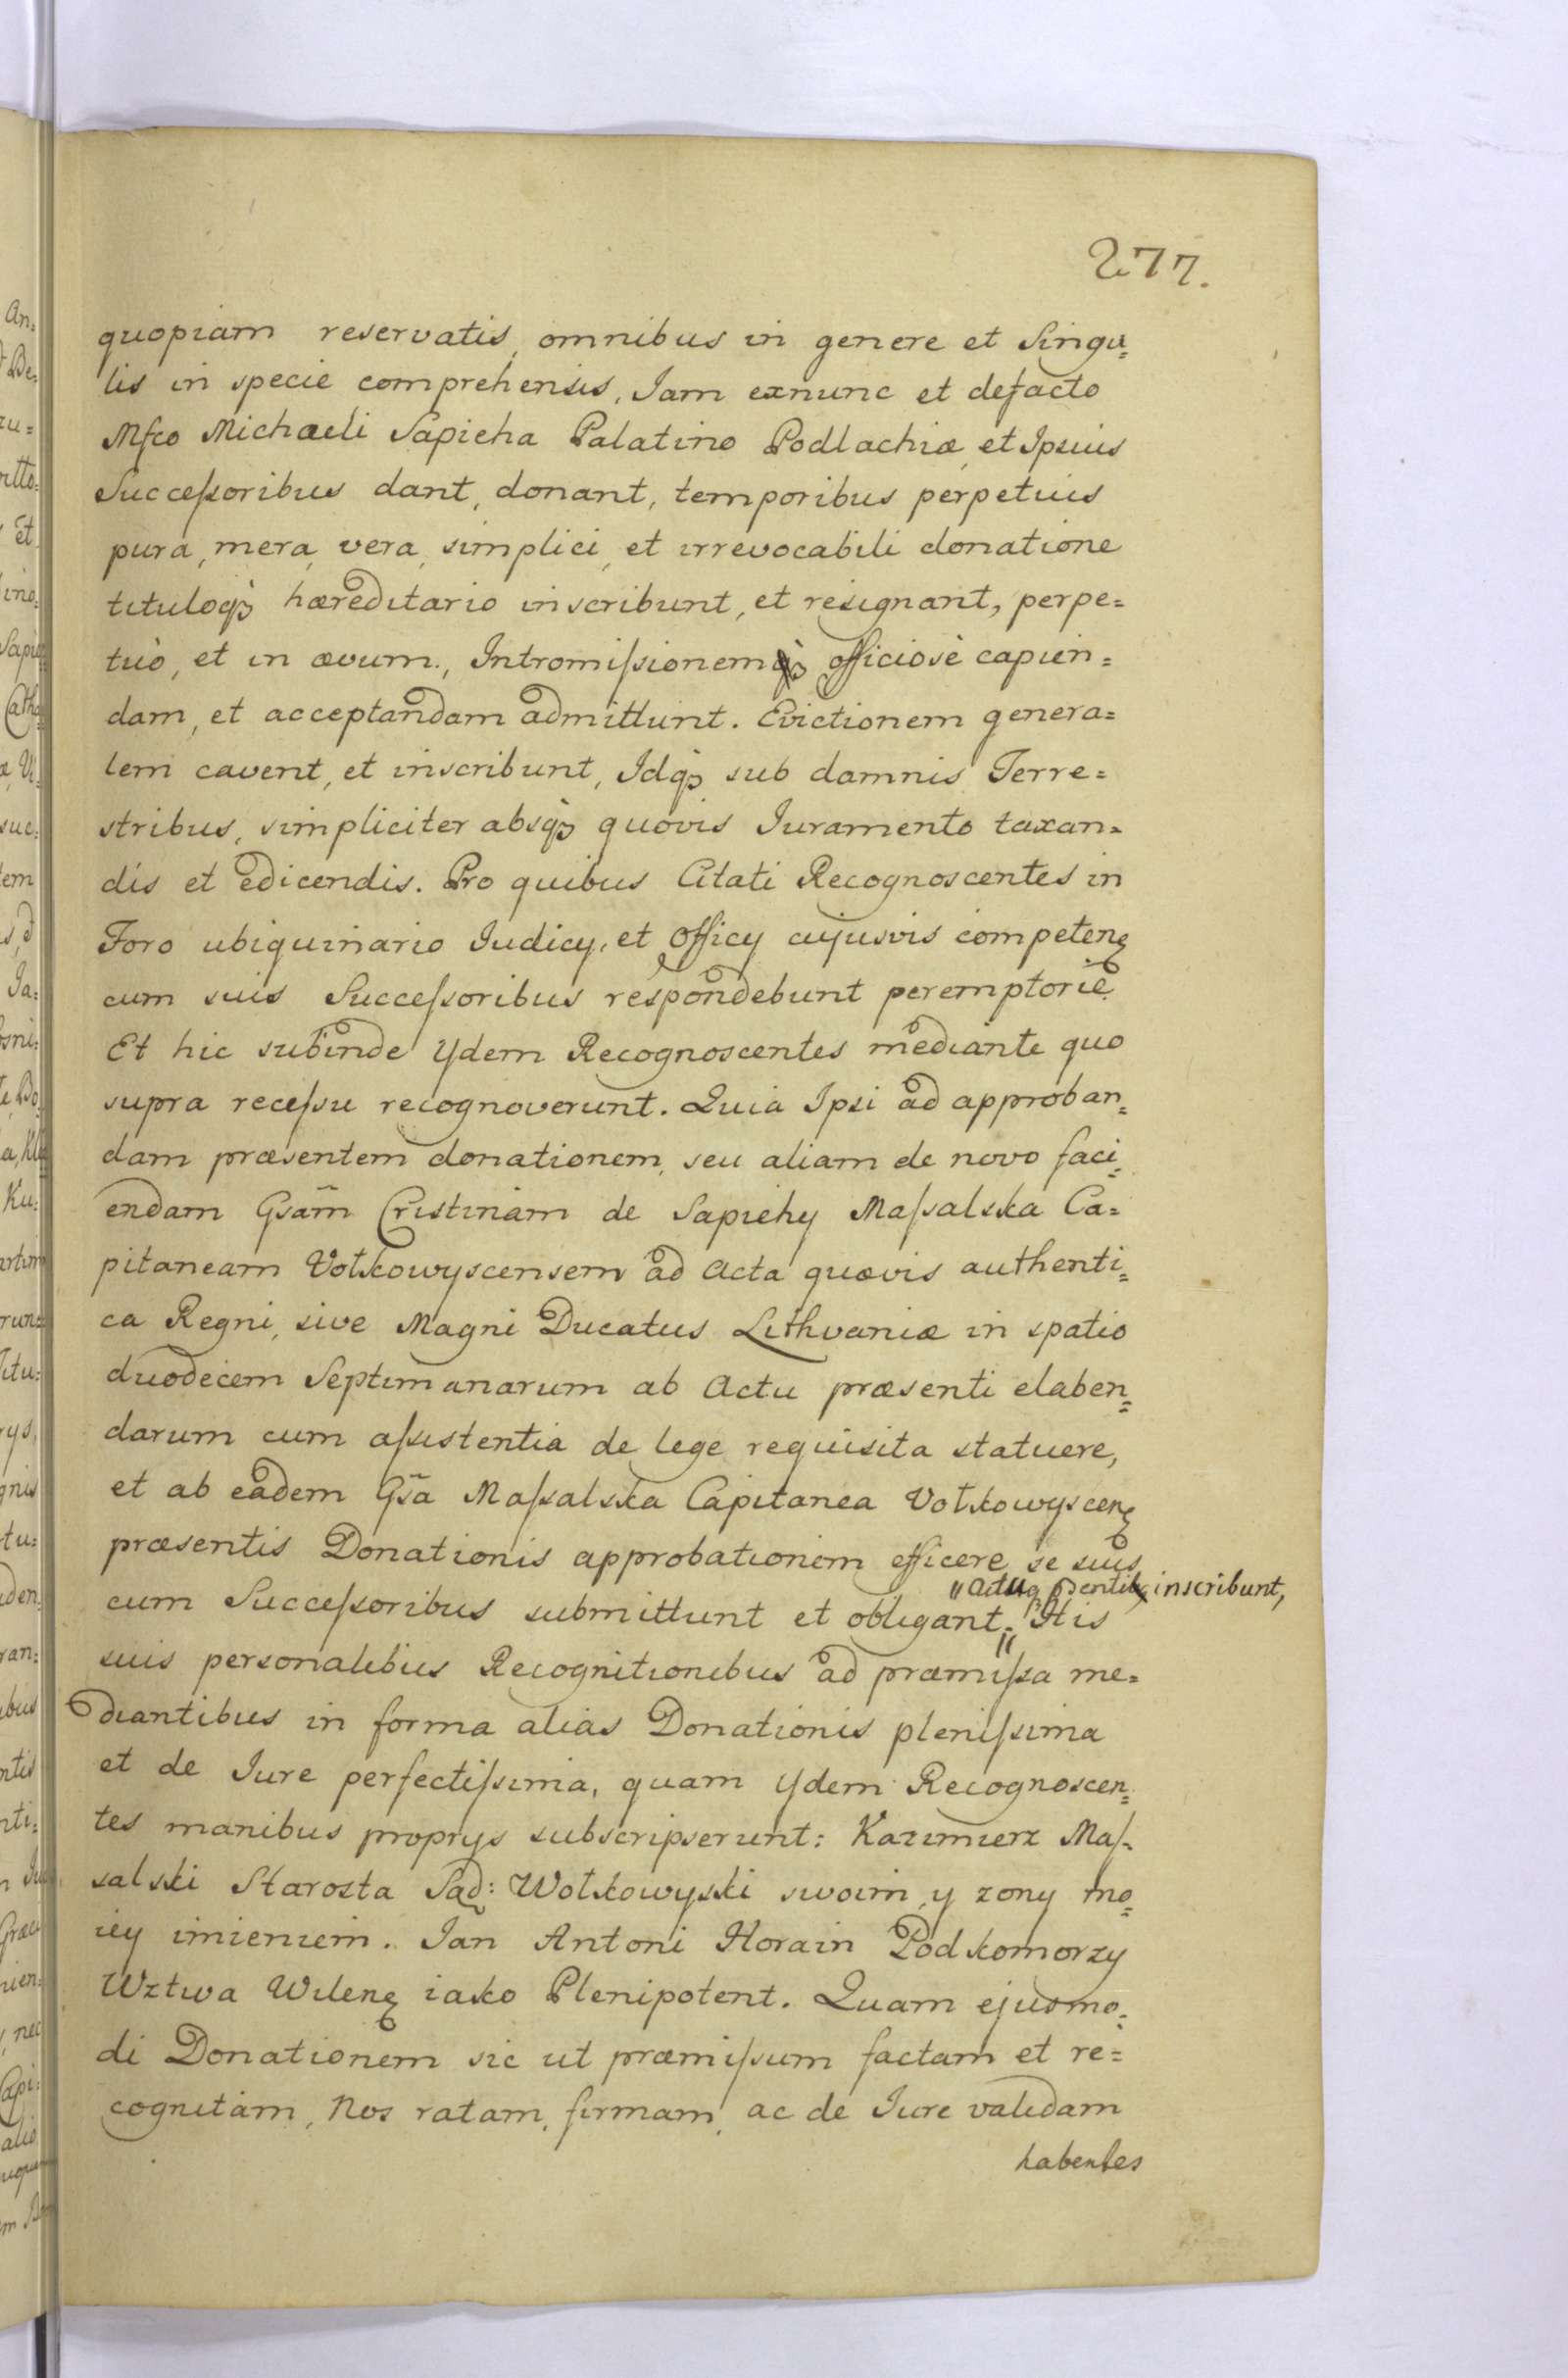 277.
quopiam reservatis, omnibus in genere et Singu=
lis in specie comprehensis, Jam exnunc et defacto
Mfco Michaeli Sapieha Palatino Podlachiæ, et Ipsius
Succeſsoribus dant, donant, temporibus perpetuis
pura, mera, vera, simplici, et irrevocabili donatione
tituloqꝫ hæreditario inscribunt, et resignant, perpe=
tuò, et in ævum., Intromiſsionem officiosè capien=
dam, et acceptandam admittunt. Evictionem genera=
lem cavent, et inscribunt, Idqꝫ sub damnis Terre=
stribus, simpliciter absqꝫ quovis Juramento taxan=
dis et edicendis. Pro quibus Citati Recognoscentes in
Foro ubiquinario Judicy, et Officy cujusvis competenꝫ
cum suis Succeſsoribus respondebunt peremptoriè
Et hic subinde Ydem Recognoscentes mediante quo
supra receſsu recognoverunt. Quia Ipsi ad approban=
dam præsentem donationem, seu aliam de novo faci=
endam Gsãm Cristinam de Sapiehy Maſsalska Ca=
pitaneam Volkowyscensem ad Acta quævis authenti=
ca Regni, sive Magni Ducatus Lithvaniæ in spatio
duodecem Septimanarum ab Actu præsenti elaben=
darum cum aſsistentia de lege requisita statuere,
et ab eadem Gsã Maſsalska Capitanea Volkowyscenꝫ
præsentis Donationis approbationem efficere se suis
" inscribunt,
cum Succeſsoribus submittunt et obligant. " His
suis personalibus Recognitionibus ad præmiſsa me=
diantibus in forma alias Donationis pleniſsima
et de Jure perfectiſsima, quam Ydem Recognoscen=
tes manibus proprys subscripserunt: Kazimierz Maſ=
salski Starosta Sąd: Wołkowyski swoim, y zony mo=
iey imieniem. Jan Antoni Horain Podkomorzy
Wztwa Wilenꝫ iako Plenipotent. Quam ejusmo=
di Donationem sic ut præmiſsum factam et re=
cognitam, Nos ratam, firmam, ac de Jure validam
habentes